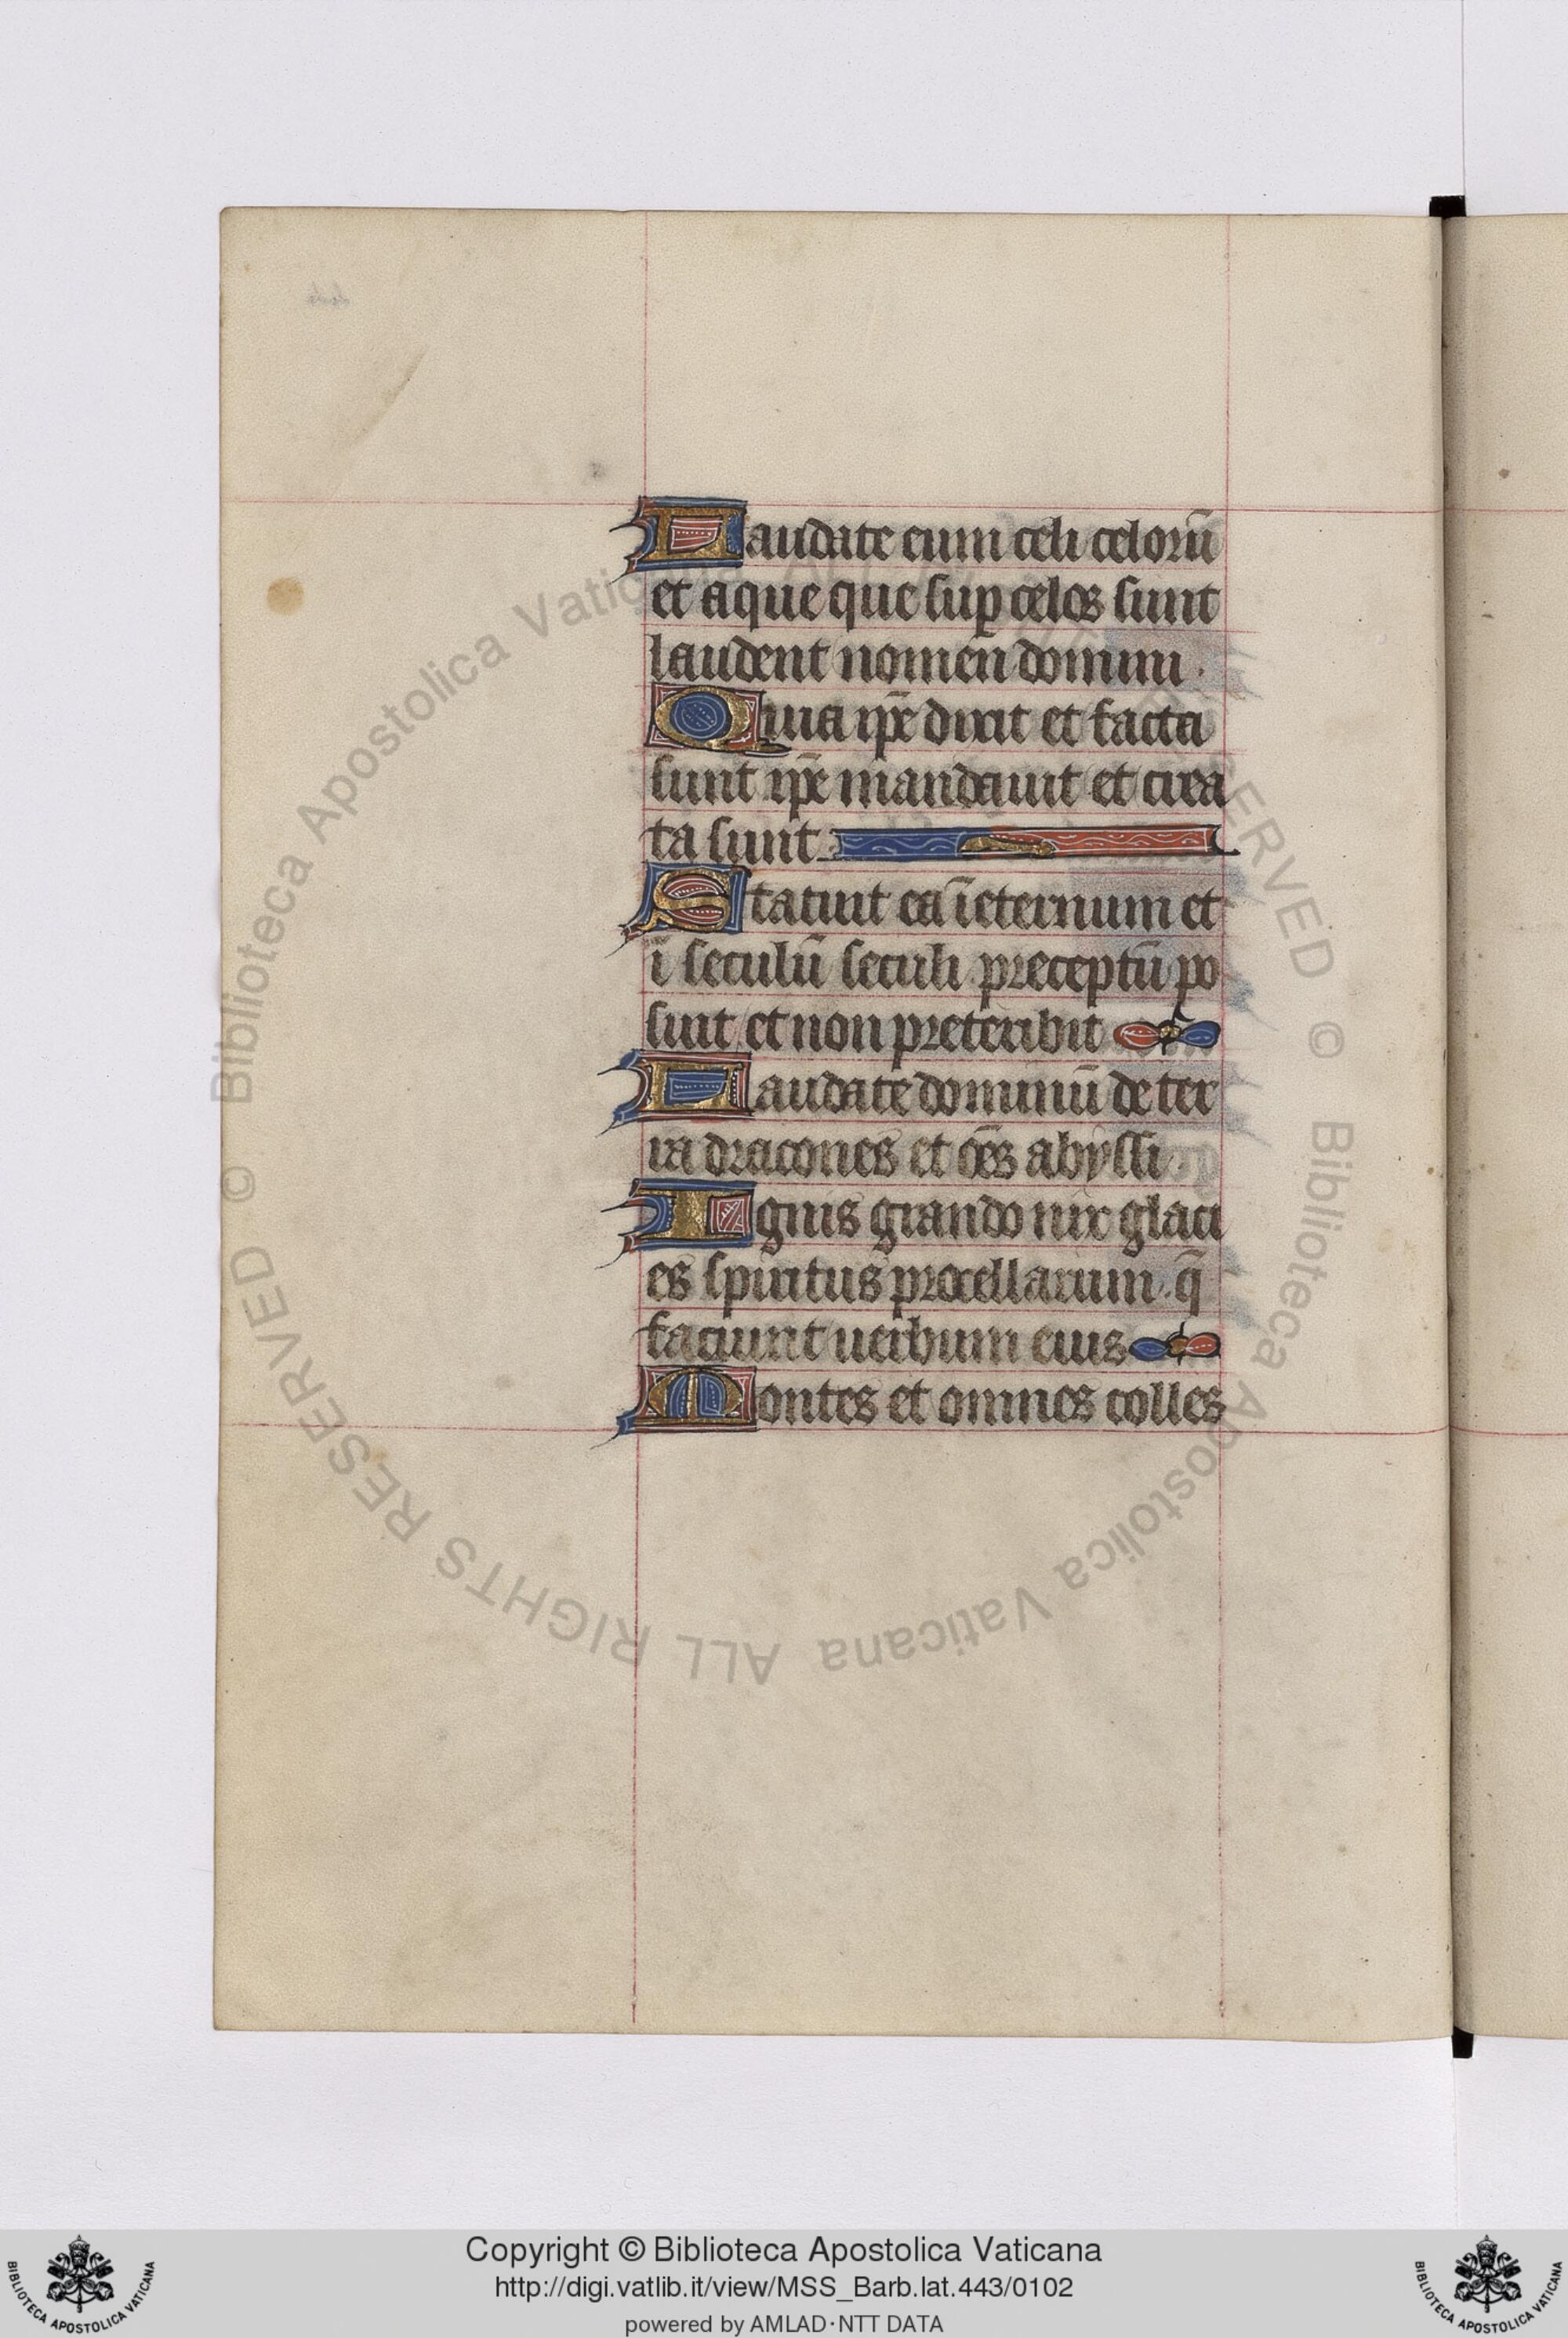 Laudate eum celi celorū
et aque que sup̄ celos sunt
laudent nomen domini .
Quia ip̄e dixit et facta
sunt ip̄e mandauit et crea
ta sunt
Statuit ea ī eternum et
ī seculū seculi preceptū po
suit et non preteribit
Laudate dominū de ter
ra dracones et om̄s abyssi .
Ignis grando nix glaci
es spiritus procellarum . q̄
faciunt uerbum eius
Montes et omnes colles
© Biblioteca Apostolica Vaticana ALL RIGHTS RESERVED © Biblioteca Apostolica Vaticana ALL RIGHTS RESERVED
Copyright © Biblioteca Apostolica Vaticana
http://digi.vatlib.it/view/MSS_Barb.lat.443/0102
powered by AMLAD·NTT DATA
BIBLIOTECA APOSTOLICA VATICANA
BIBLIOTECA APOSTOLICA VATICANA